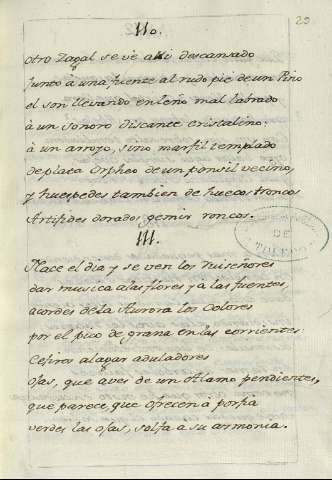 110.
23
otro Zagal se vè alli descansado
junto à una fuente al rudo pie de un Pino
el son llevando en leño mal labrado
à un sonoro discante cristalino.
à un arroyo, sino marfil templado
de plata Orpheo de un pensil vecino,
y huespedes tambien de huecos troncos
Artifides dorados gemir roncos.
111.
Nace el dia y se ven los ruiseñores
dar musica alas flores y à las fuentes,
acordes dela Aurora los colores
por el pico de grana en las corrientes
Cefiros alagar aduladores
ojas, que aves de un Alamo pendientes,
que parece, que ofrecen à porfia
verdes las ojas, solfa a su armonia.
DE
TOLEDO